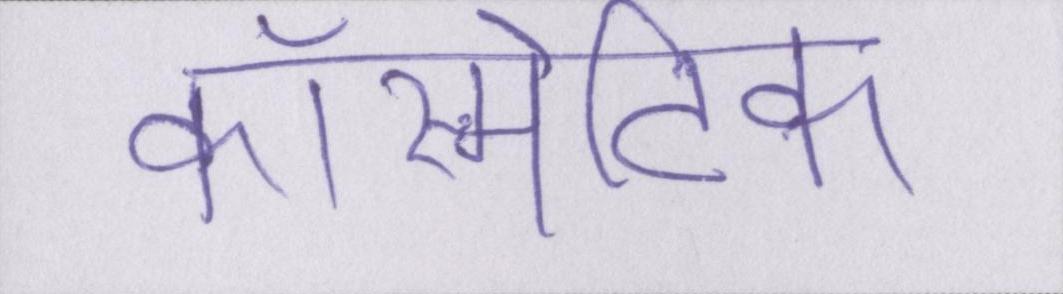 कॉस्मेटिक